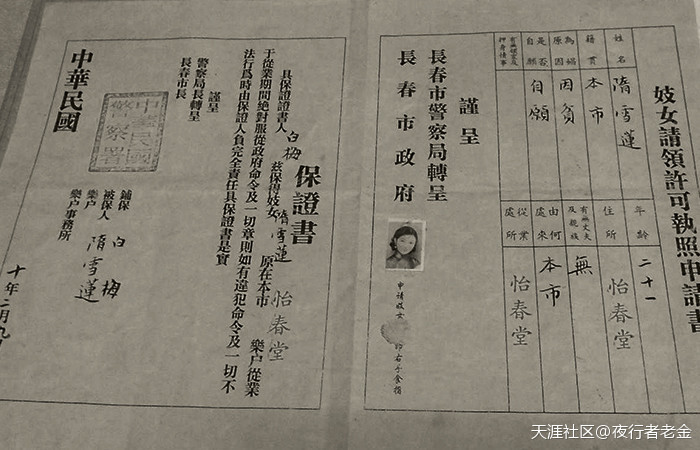 妓女請領許可執照申請書
姓名 隋雪蓮 年齡 二十一
籍貫 本市 住所 怡春堂
為娼原因 因貧 有無丈夫及親族 無
是否自願 自願 由何處來 本市
有無領主及押身情事 從業處所 怡春堂
謹呈
長春市警察局轉呈
長春市政府
申請妓女
右手食指
保證書
具保證證書人 白梅 茲保得妓女 隋雪蓮 原在本市 怡春堂 樂戶從業
于從業期間絕對服從政府命令及一切章則如有違犯命令及一切不
法行為時由保證人負完全責任具保證書是實
謹呈
警察局長轉呈
長春市長
鋪保 白梅
被保人 隋雪蓮
樂戶
樂戶事務所
中華民國
十年二月九
中華民國警察署
天涯社区@夜行者老金